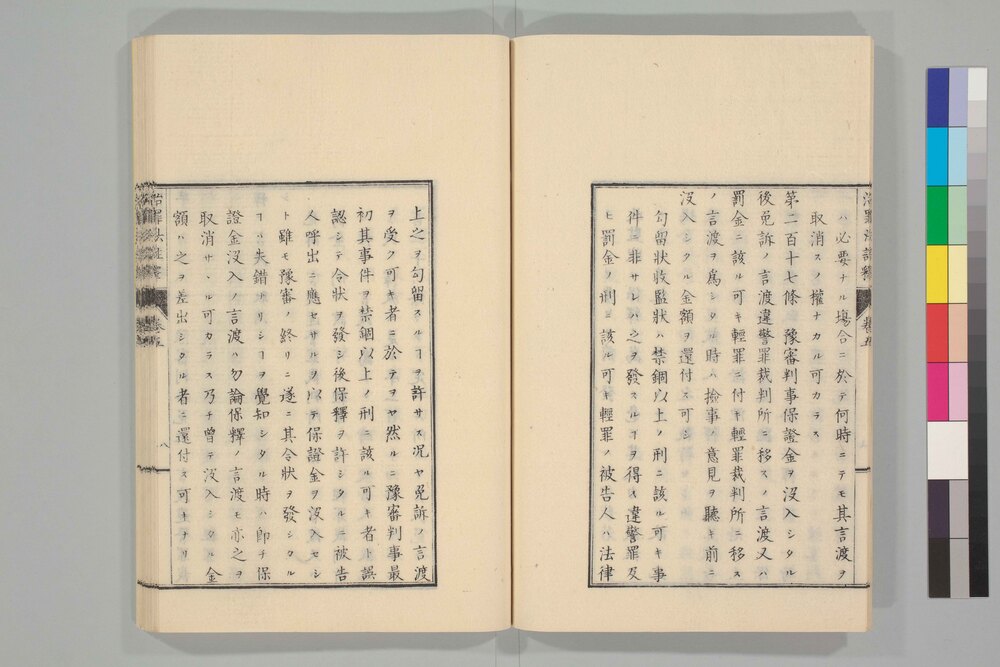 ハ必要ナル塲合ニ於テ何時ニテモ其言渡ヲ
取消スノ權ナカル可カラス
第二百十七條 豫審判事保證金ヲ沒入シタル
後免訴ノ言渡違警罪裁判所ニ移スノ言渡又ハ
罰金ニ該ル可キ輕罪ニ付キ輕罪裁判所ニ移ス
ノ言渡ヲ爲シタル時ハ撿事ノ意見ヲ聽キ前ニ
沒入シタル金額ヲ還付ス可シ
勾留狀收監狀ハ禁錮以上ノ刑ニ該ル可キ事
件ニ非サレハ之ヲ發スルヿヲ得ス違警罪及
ヒ罰金ノ刑ニ該ル可キ輕罪ノ被告人ハ法律
上之ヲ勾留スルヿヲ許サス况ヤ免訴ノ言渡
ヲ受ク可キ者ニ於テヲヤ然ルニ豫審判事最
初其事件ヲ禁錮以上ノ刑ニ該ル可キ者ト誤
認シテ令狀ヲ發シ後保釋ヲ許シタルニ被告
人呼出ニ應セサルヲ以テ保證金ヲ沒入セシ
ト雖モ豫審ノ終リニ遂ニ其令狀ヲ發シタル
ヿノ失錯ナリシヿヲ覺知シタル時ハ即チ保
證金沒入ノ言渡ハ勿論保釋ノ言渡モ亦之ヲ
取消サヽル可カラス乃チ曽テ沒入シタル金
額ハ之ヲ差出シタル者ニ還付ス可キナリ